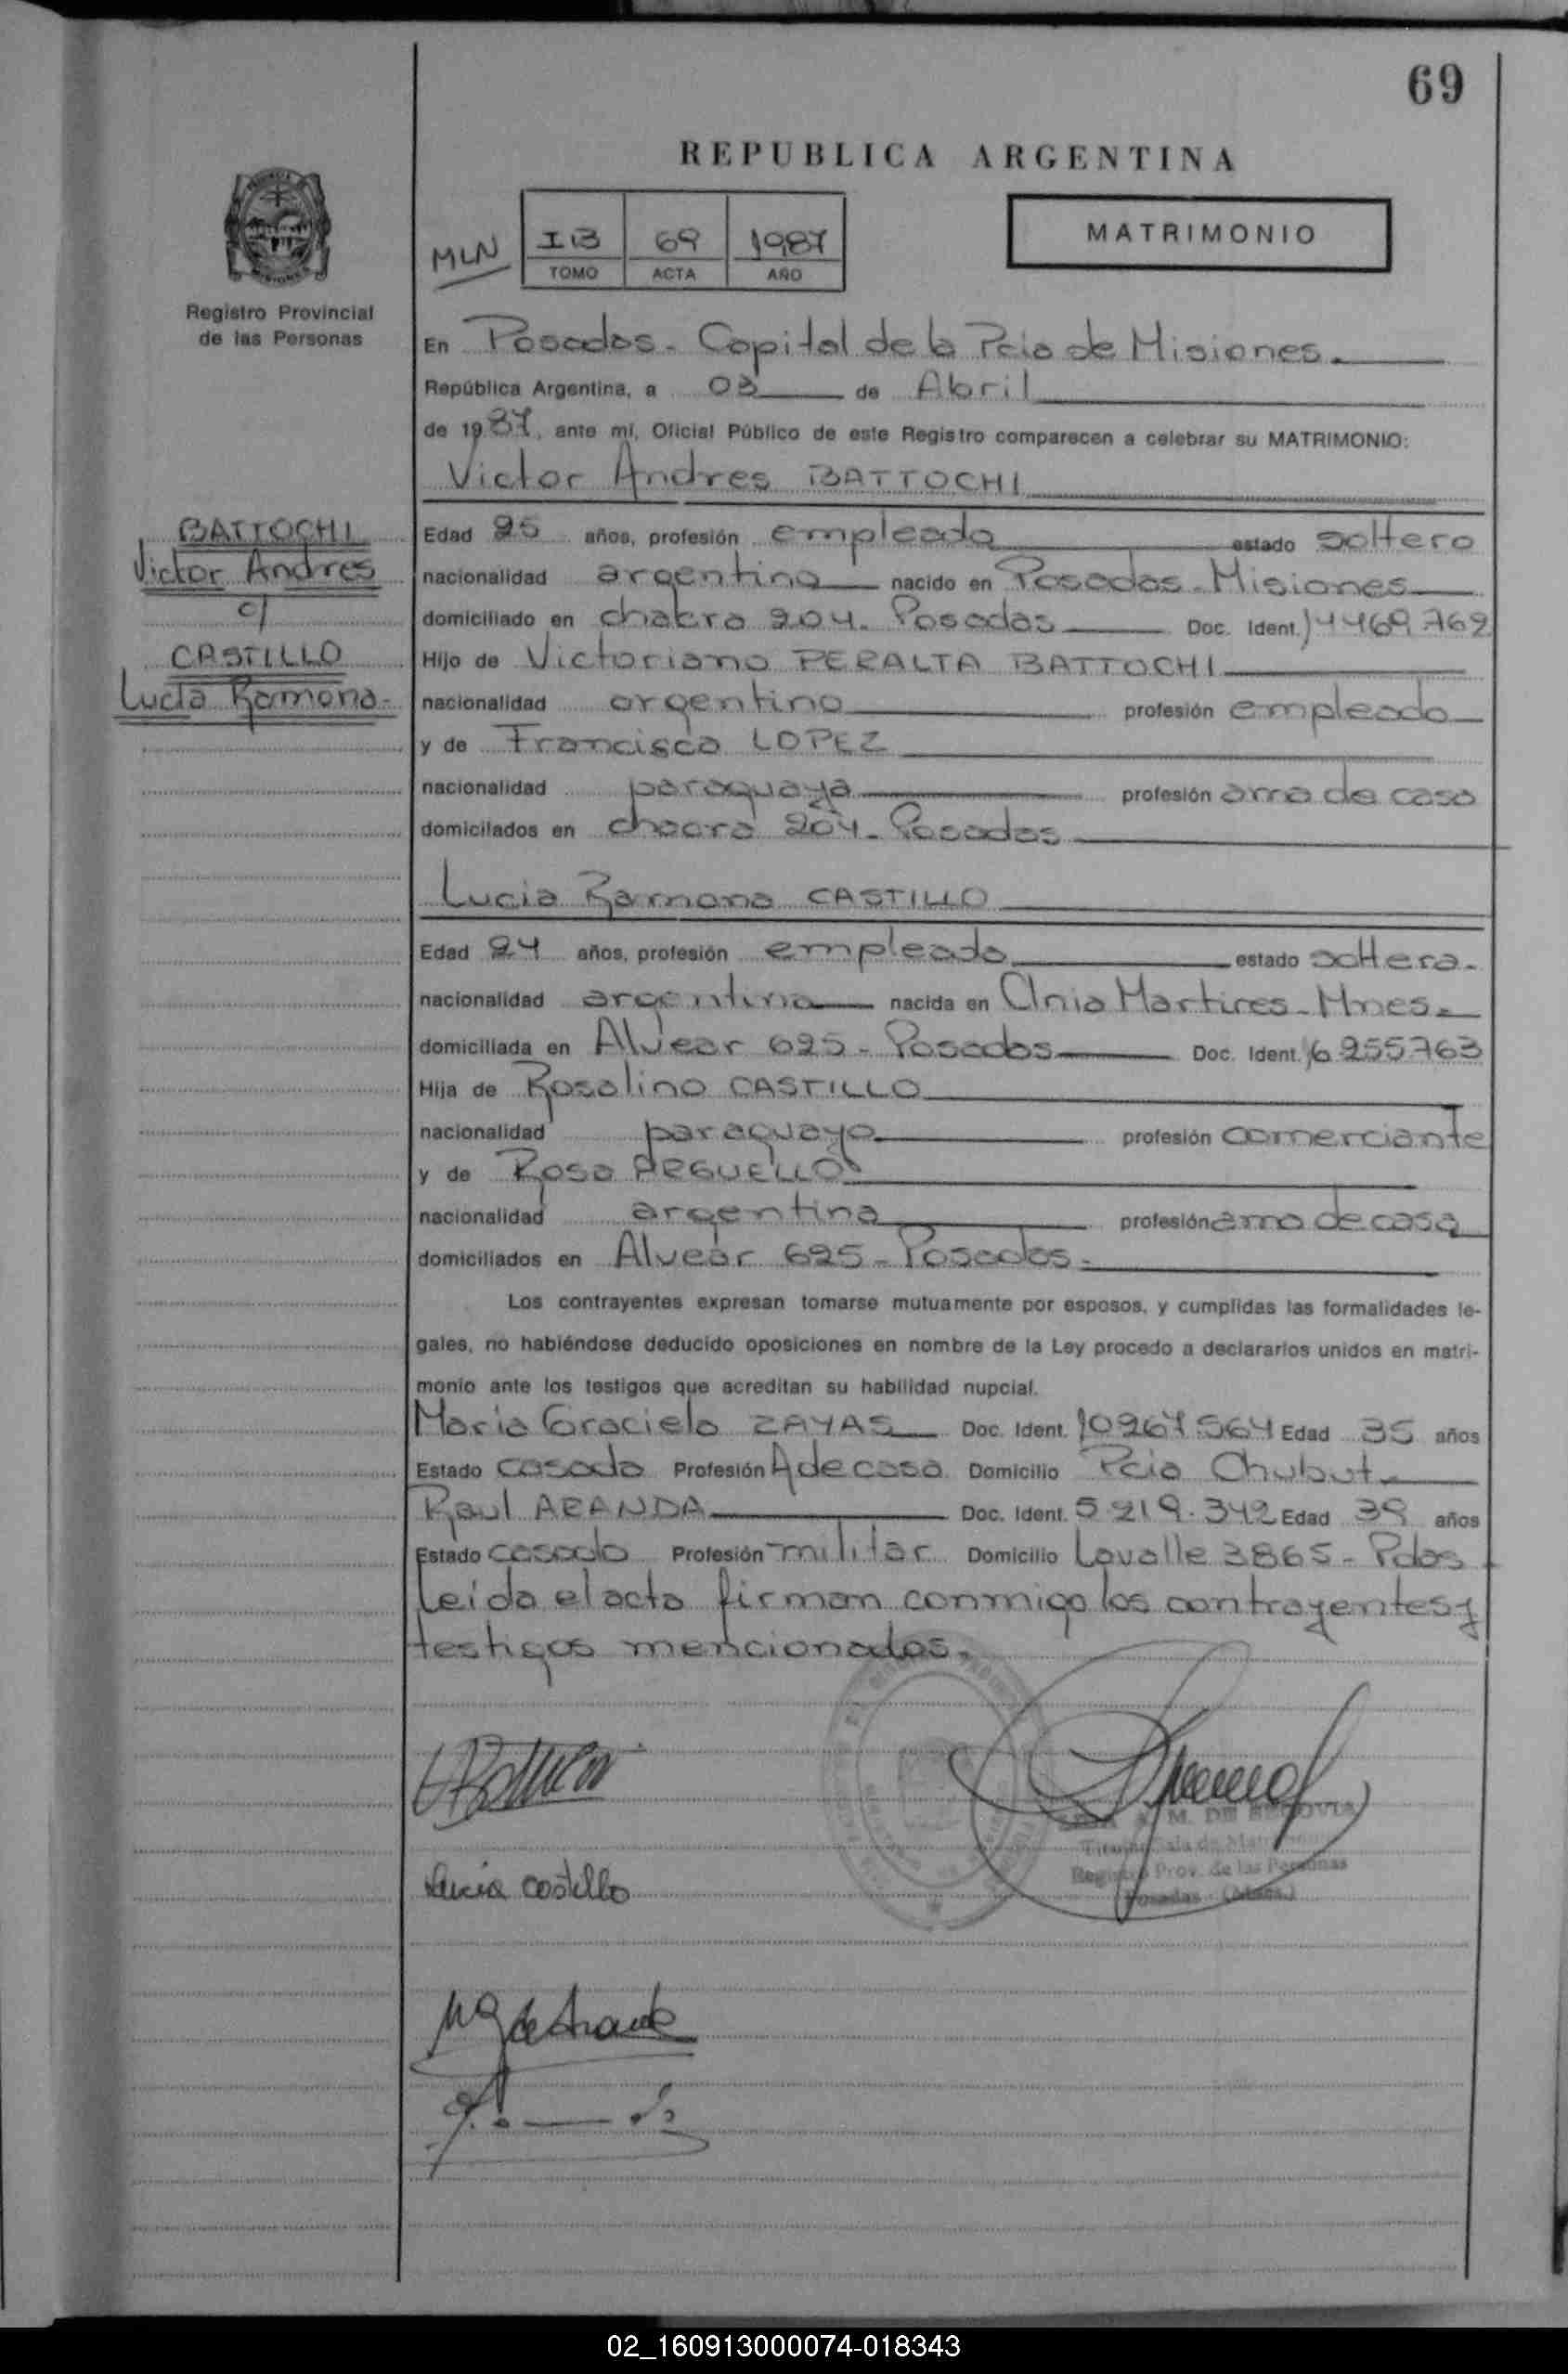 69
REPUBLICA ARGENTINA
MLN
IB 69 1987
TOMO ACTA AÑO
MATRIMONIO
Registro Provincial
de las Personas
En Posadas - Capital de la Pcia de Misiones.
República Argentina, a 03 de Abril
de 1987, ante mí, Oficial Público de este Registro comparecen a celebrar su MATRIMONIO:
Victor Andres BATTOCHI
BATTOCHI
Victor Andres
c/
CASTILLO
Lucia Ramona-
Edad 25 años, profesión empleado estado soltero
nacionalidad argentino nacido en Posadas - Misiones
domiciliado en chakra 204. Posadas Doc. Ident. 14469.762
Hijo de Victoriano PERALTA BATTOCHI
nacionalidad argentino profesión empleado
y de Francisca LOPEZ
nacionalidad paraguaya profesión ama de casa
domicilados en chacra 204 - Posadas
Lucia Ramona CASTILLO
Edad 24 años, profesión empleada estado soltera.
nacionalidad argentina nacida en Martires - Mnes.
domiciliada en Alvear 625 - Posadas Doc. Ident. 16255763
Hija de Rosalino CASTILLO
nacionalidad paraguayo profesión comerciante
y de Rosa ARGUELLO
nacionalidad argentina profesión ama de casa
domiciliados en Alvear 625 - Posadas -
Los contrayentes expresan tomarse mutuamente por esposos, y cumplidas las formalidades le-
gales, no habiéndose deducido oposiciones en nombre de la Ley procedo a declararlos unidos en matri-
monio ante los testigos que acreditan su habilidad nupcial.
Maria Graciela ZAYAS Doc. Ident. 10267.564 Edad 35 años
Estado casada Profesión A de casa Domicilio Pcia Chubut
Raul ARANDA Doc. Ident. 5.219.342 Edad 39 años
Estado casado Profesión militar Domicilio Lavalle 3865 - Pdas
Leida el acta firman conmigo los contrayentes y
testigos mencionados.
M. DE SEGOVIA
Titular Sala de Matrimonios
Registro Prov. de las Personas
Posadas (Mnes.)
Lucia Castillo
02_160913000074-018343